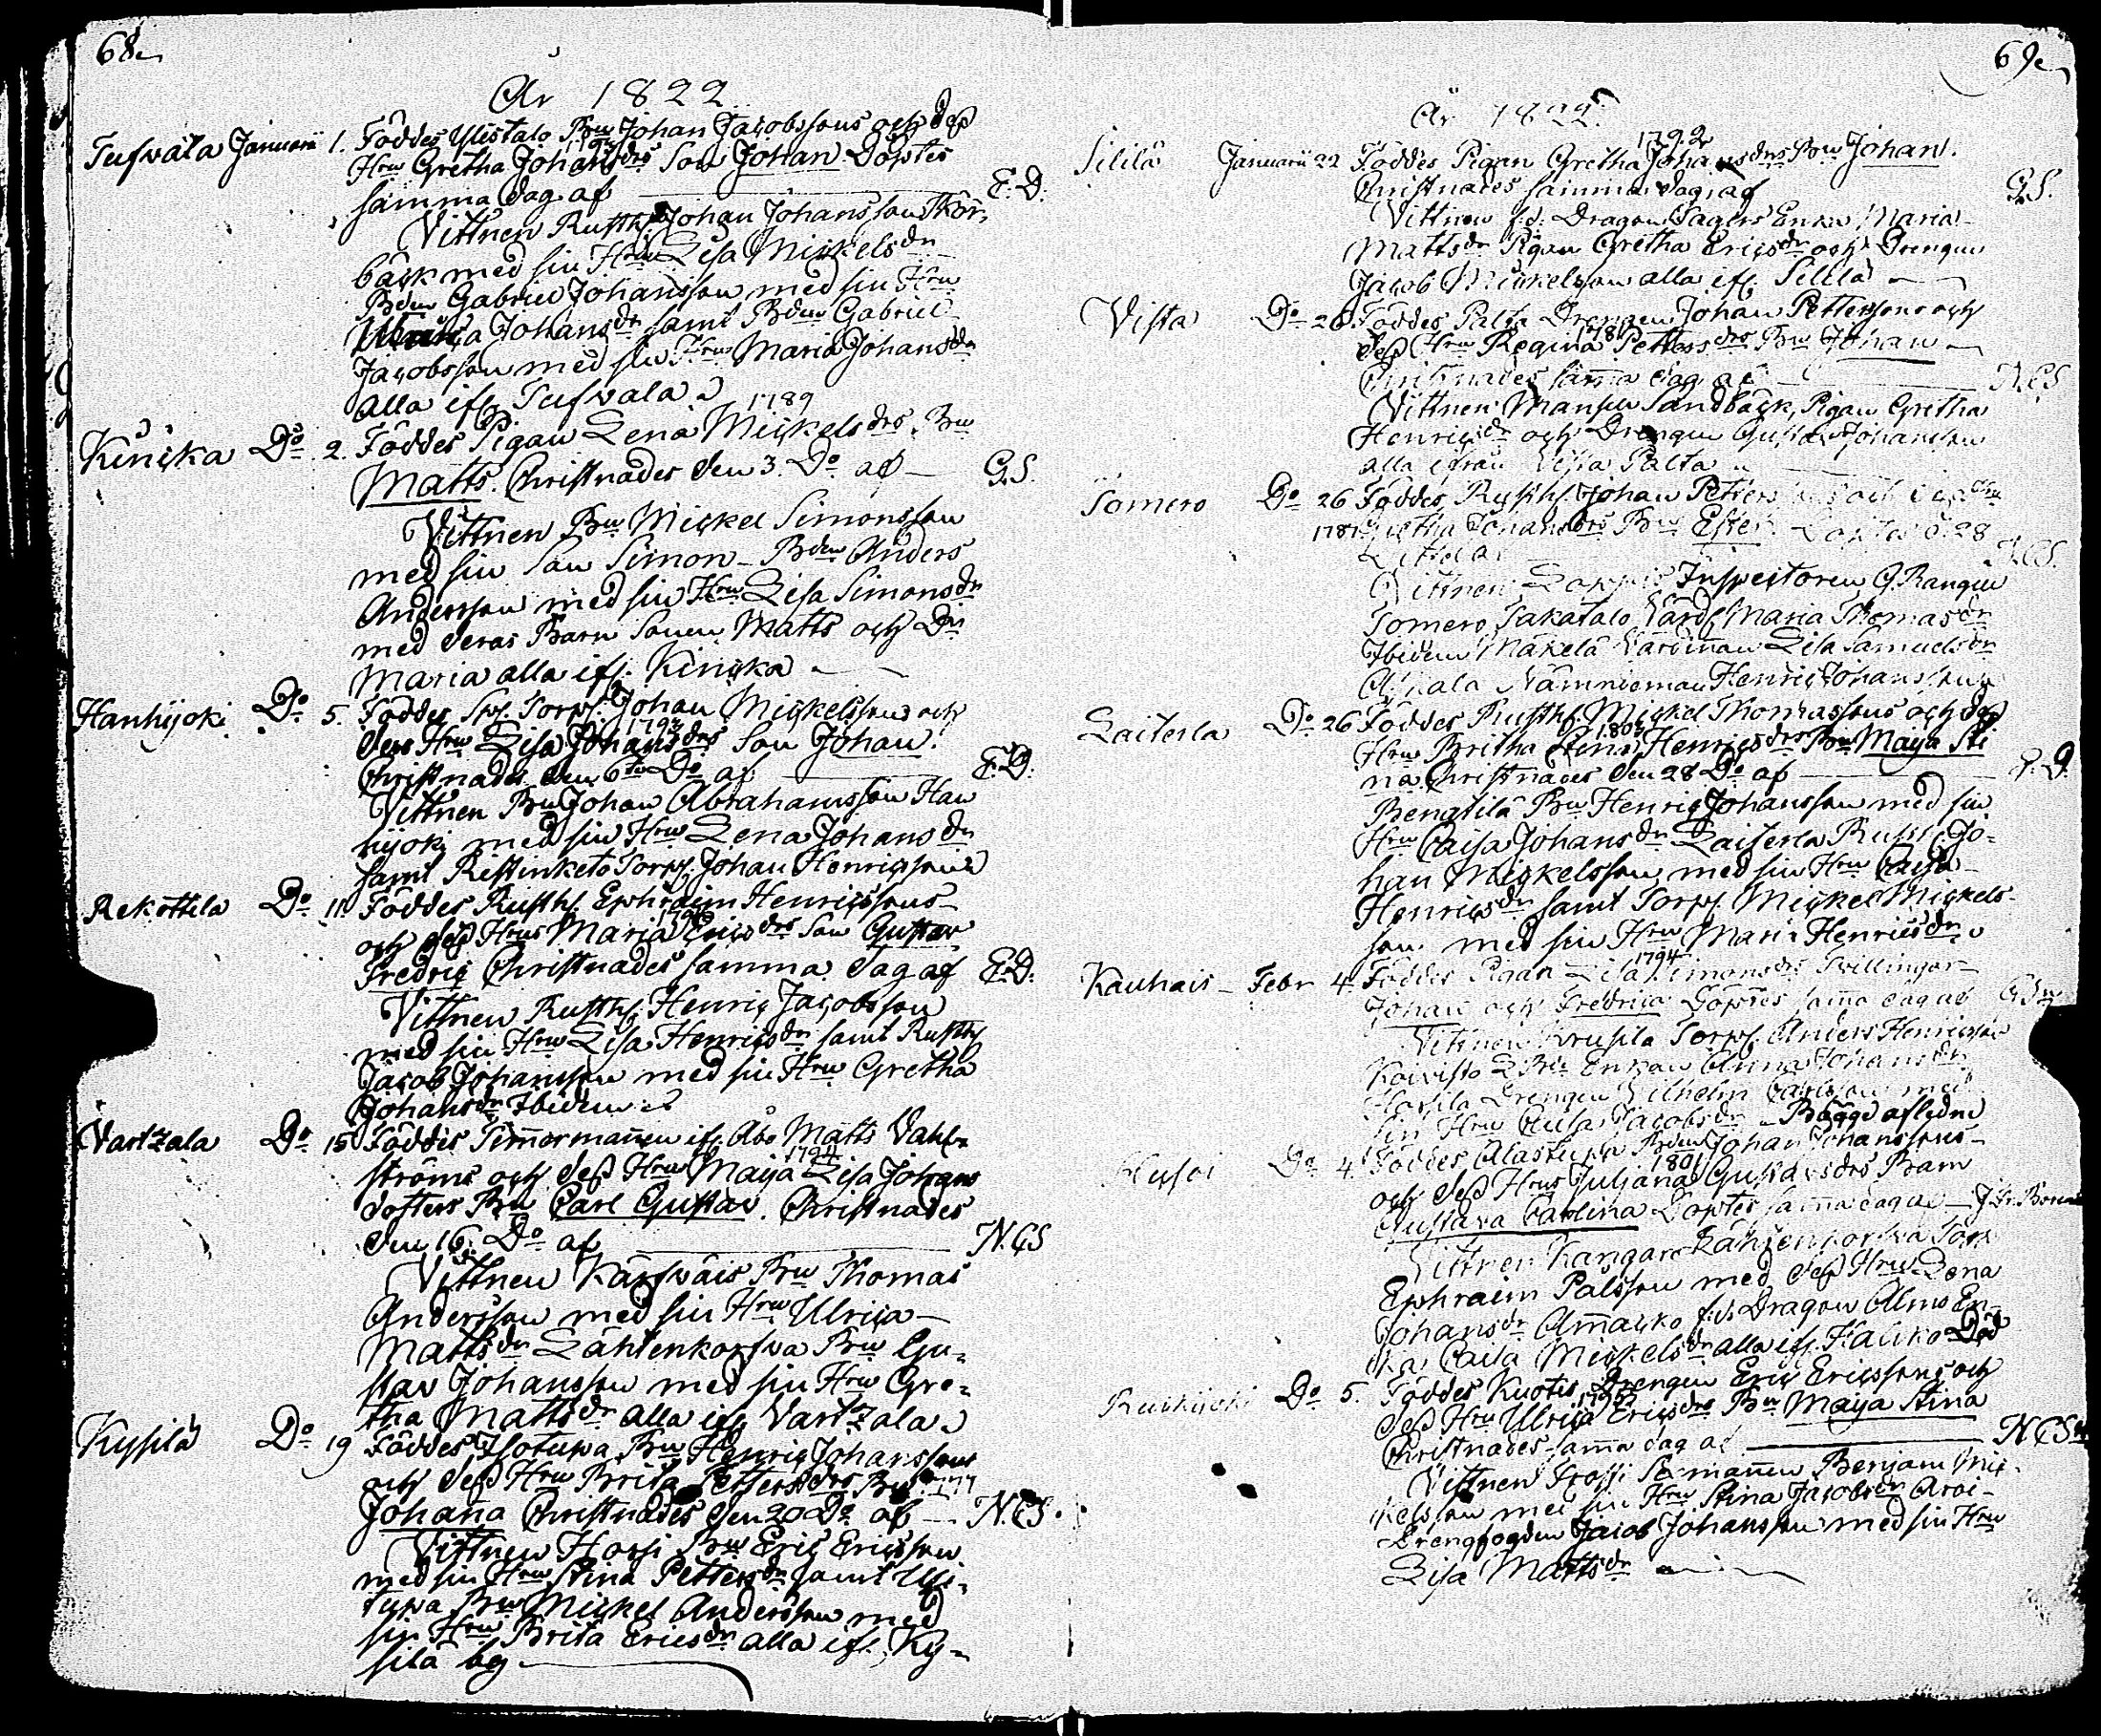 68.
År 1822
Tufvala Januarii 1. Föddes Ylistalo Bdn Johan Jacobssons och dess
1793
Hru Gretha Johansdrs Son Johan Döptes
samma dag af E.D.
Vittnen Rusth. Johan Johansson Thör-
bäck med sin Hru Lisa Mickelsdr
Bdn Gabriel Johansson med sin Hru
Johansdr samt Bdn Gabriel
Jacobsson med sin Hru Maria Johansdr
alla ifr. Tufvala
1789
Kincka Do 2. Föddes Pigan Lena Mickelsdrs Bn
Matts. Christnades den 3. Do af G.S.
Vittnen Bn Mickel Simonsson
med sin Son Simon Bdn Anders
Andersson med sin Hru Lisa Simonsdr
med deras Barn Sonen Matts och Dr
Maria alla ifr. Kincka
Hanhijoki Do 5. Föddes Torp. Johan Mickelssons och
1793
dess Hru Lisa Johansdrs Son Johan.
Christnades den 6te Do af E.D.
Vittnen Bn Johan Abrahamsson Han
hijoki med sin Hru Lena Johansdr
samt Ristinketo Torp. Johan Henricsson
Rekottila Do 11 Föddes Rusth. Ephraim Henricssons
och dess Hrus Maria Ericsdrs Son Gustav
Fredric Christnades samma dag af E.D.
Vittnen Rusth. Henric Jacobsson
med sin Hru Lisa Henricsdr samt Rusth.
Jacob Johansson med sin Hru Gretha
Johansdr Ibidem
Vartzala Do 15 Föddes Timmermannen ifr. Åbo Matts Vahl-
1794
ströms och dess Hru Maija Lisa Johans
dotters Bn Carl Gustav. Christnades
den 16. Do af N.G.S
Vittnen Karfvais Bn Thomas
Andersson med sin Hru Ulrica
Mattsdr Lähtenkorfva Bn Gu-
stav Johansson med sin Hru Gre-
tha Mattsdr alla ifr. Vartzala
Kysilä Do 19 Föddes Isotupa Bn Henric Johanssons
och dess Hru Brita Pettersdrs Bn
Johanna Christnades den 20 Do af N.G.S.
Vittnen Hossi Bn Eric Ericsson
med sin Hru Stina Pettersdr samt Usi-
tupa Bn Mickel Andersson med
sin Hru Brita Ericsdr alla ifr. Ky-
silä by
69.
År 1822.
1792
Sililä Januarii 22 Föddes Pigan Gretha Johansdrs Bn Johan.
Christnades samma dag af G.S.
Vittnen f.d. Dragon Enka Maria
Mattsdr Pigan Gretha Ericsdr och Drengen
Jacob Mickelsson alla ifr. Sililä
Vista Do 26. Föddes Palta Drengen Johan Petterssons och
dess Hru Regina Pettersdrs Bn Johan
Christnades samma dag af N.G.S.
Vittnen Mansell Sandbäck, Pigan Gretha
Henricsdr och Drengen Gustav Johansson
alla ifrån Vista Palta
Somero Do 26 Föddes Rusth. Johan
1787 Gretha Johansdrs Bn Ester Döptes d. 28
Vittnen Inspectoren G. Rangen
Somero Takatalo Värd. Maria Thomasdr
Ibidem Mäkelä Värdinnan Lisa Samuelsdr
Nämndeman Henric Johansson
Laiterla Do 26 Föddes Rusth. Mickel Thomassons och dess
1803
Hru Britha Stina Henricsdrs Bn Maija Sti
na Christnades den 28 Do af E.D.
Bengtilä Bn Henric Johansson med sin
Hru Caisa Johansdr Laiterla Rusth. Jo-
han Mickelsson med sin Hru Caisa
Henricsdr samt Torp. Mickel Mickels-
son med sin Hru Maria Henricsdr
1794
Kauhais Febr 4. Föddes Pigan Lisa Simonsdrs Tvillingar
Johan och Fredrica Döptes samma dag af
Vittnen Krusila Torp. Anders Henricsson
Koivisto Enkan Anna Johansdr
Drengen Vilhelm med
sin Hru Caisa Jacobsdr Bägge afledne
Do 4. Föddes Alastupa Bdn Johan Johanssons
1801
och dess Hrus Juliana Gustavsdrs Barn
Gustava Carolina Döptes samma dag af
Vittnen Kangare Lähtenkorfva Torp
Ephraim Pålsson med dess Hru Lena
Johansdr Ammacko f.d. Dragon Alms En-
ka Caisa Mickelsdr alla ifr. Halicko Död
Do 5. Föddes Kuotis Drengen Eric Ericssons och
dess Hru Ulrica Ericsdrs Bn Maija Stina
Christnades samma dag af N.G.S
Vittnen Benjam Mic-
kelsson med sin Hru Stina Jacobsdr
Drengfogden Jacob Johansson med sin Hru
Lisa Mattsdr